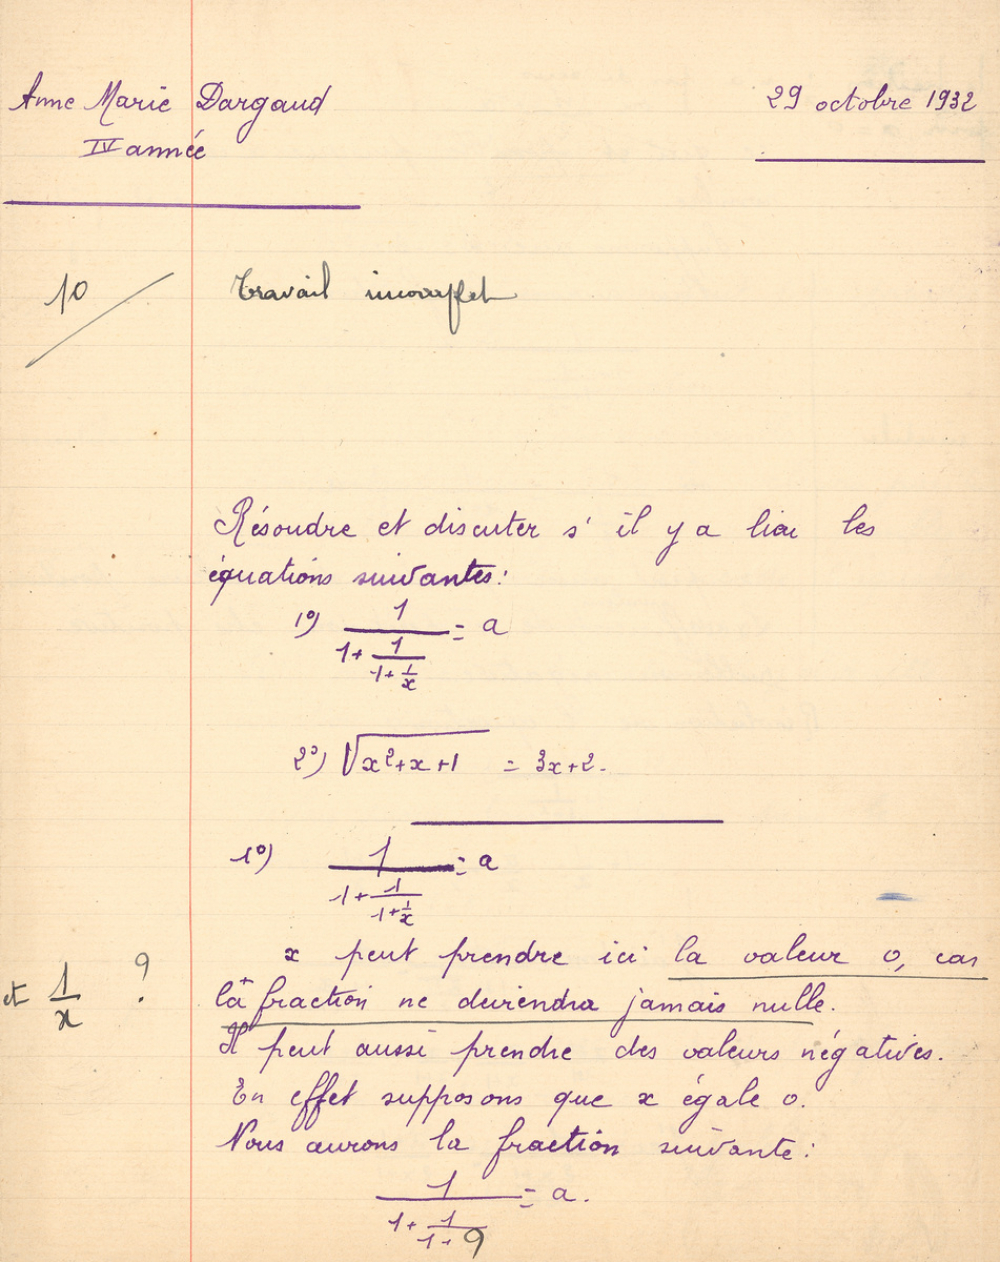 Anne Marie Dargaud
29 octobre 1932
IV année
10
Travail incomplet
Résoudre et discuter s' il y a lieu les
équations suivantes:
1º) 1/(1+1/(1+1/x)) = a
2º) √(x²+x+1) = 3x+2.
1º) 1/(1+1/(1+1/x)) = a
x peut prendre ici la valeur 0, car
et 1/x ?
la fraction ne deviendra jamais nulle.
Il peut aussi prendre des valeurs négatives.
En effet supposons que x égale 0.
Nous aurons la fraction suivante:
1/(1+1/(1+?)) = a.